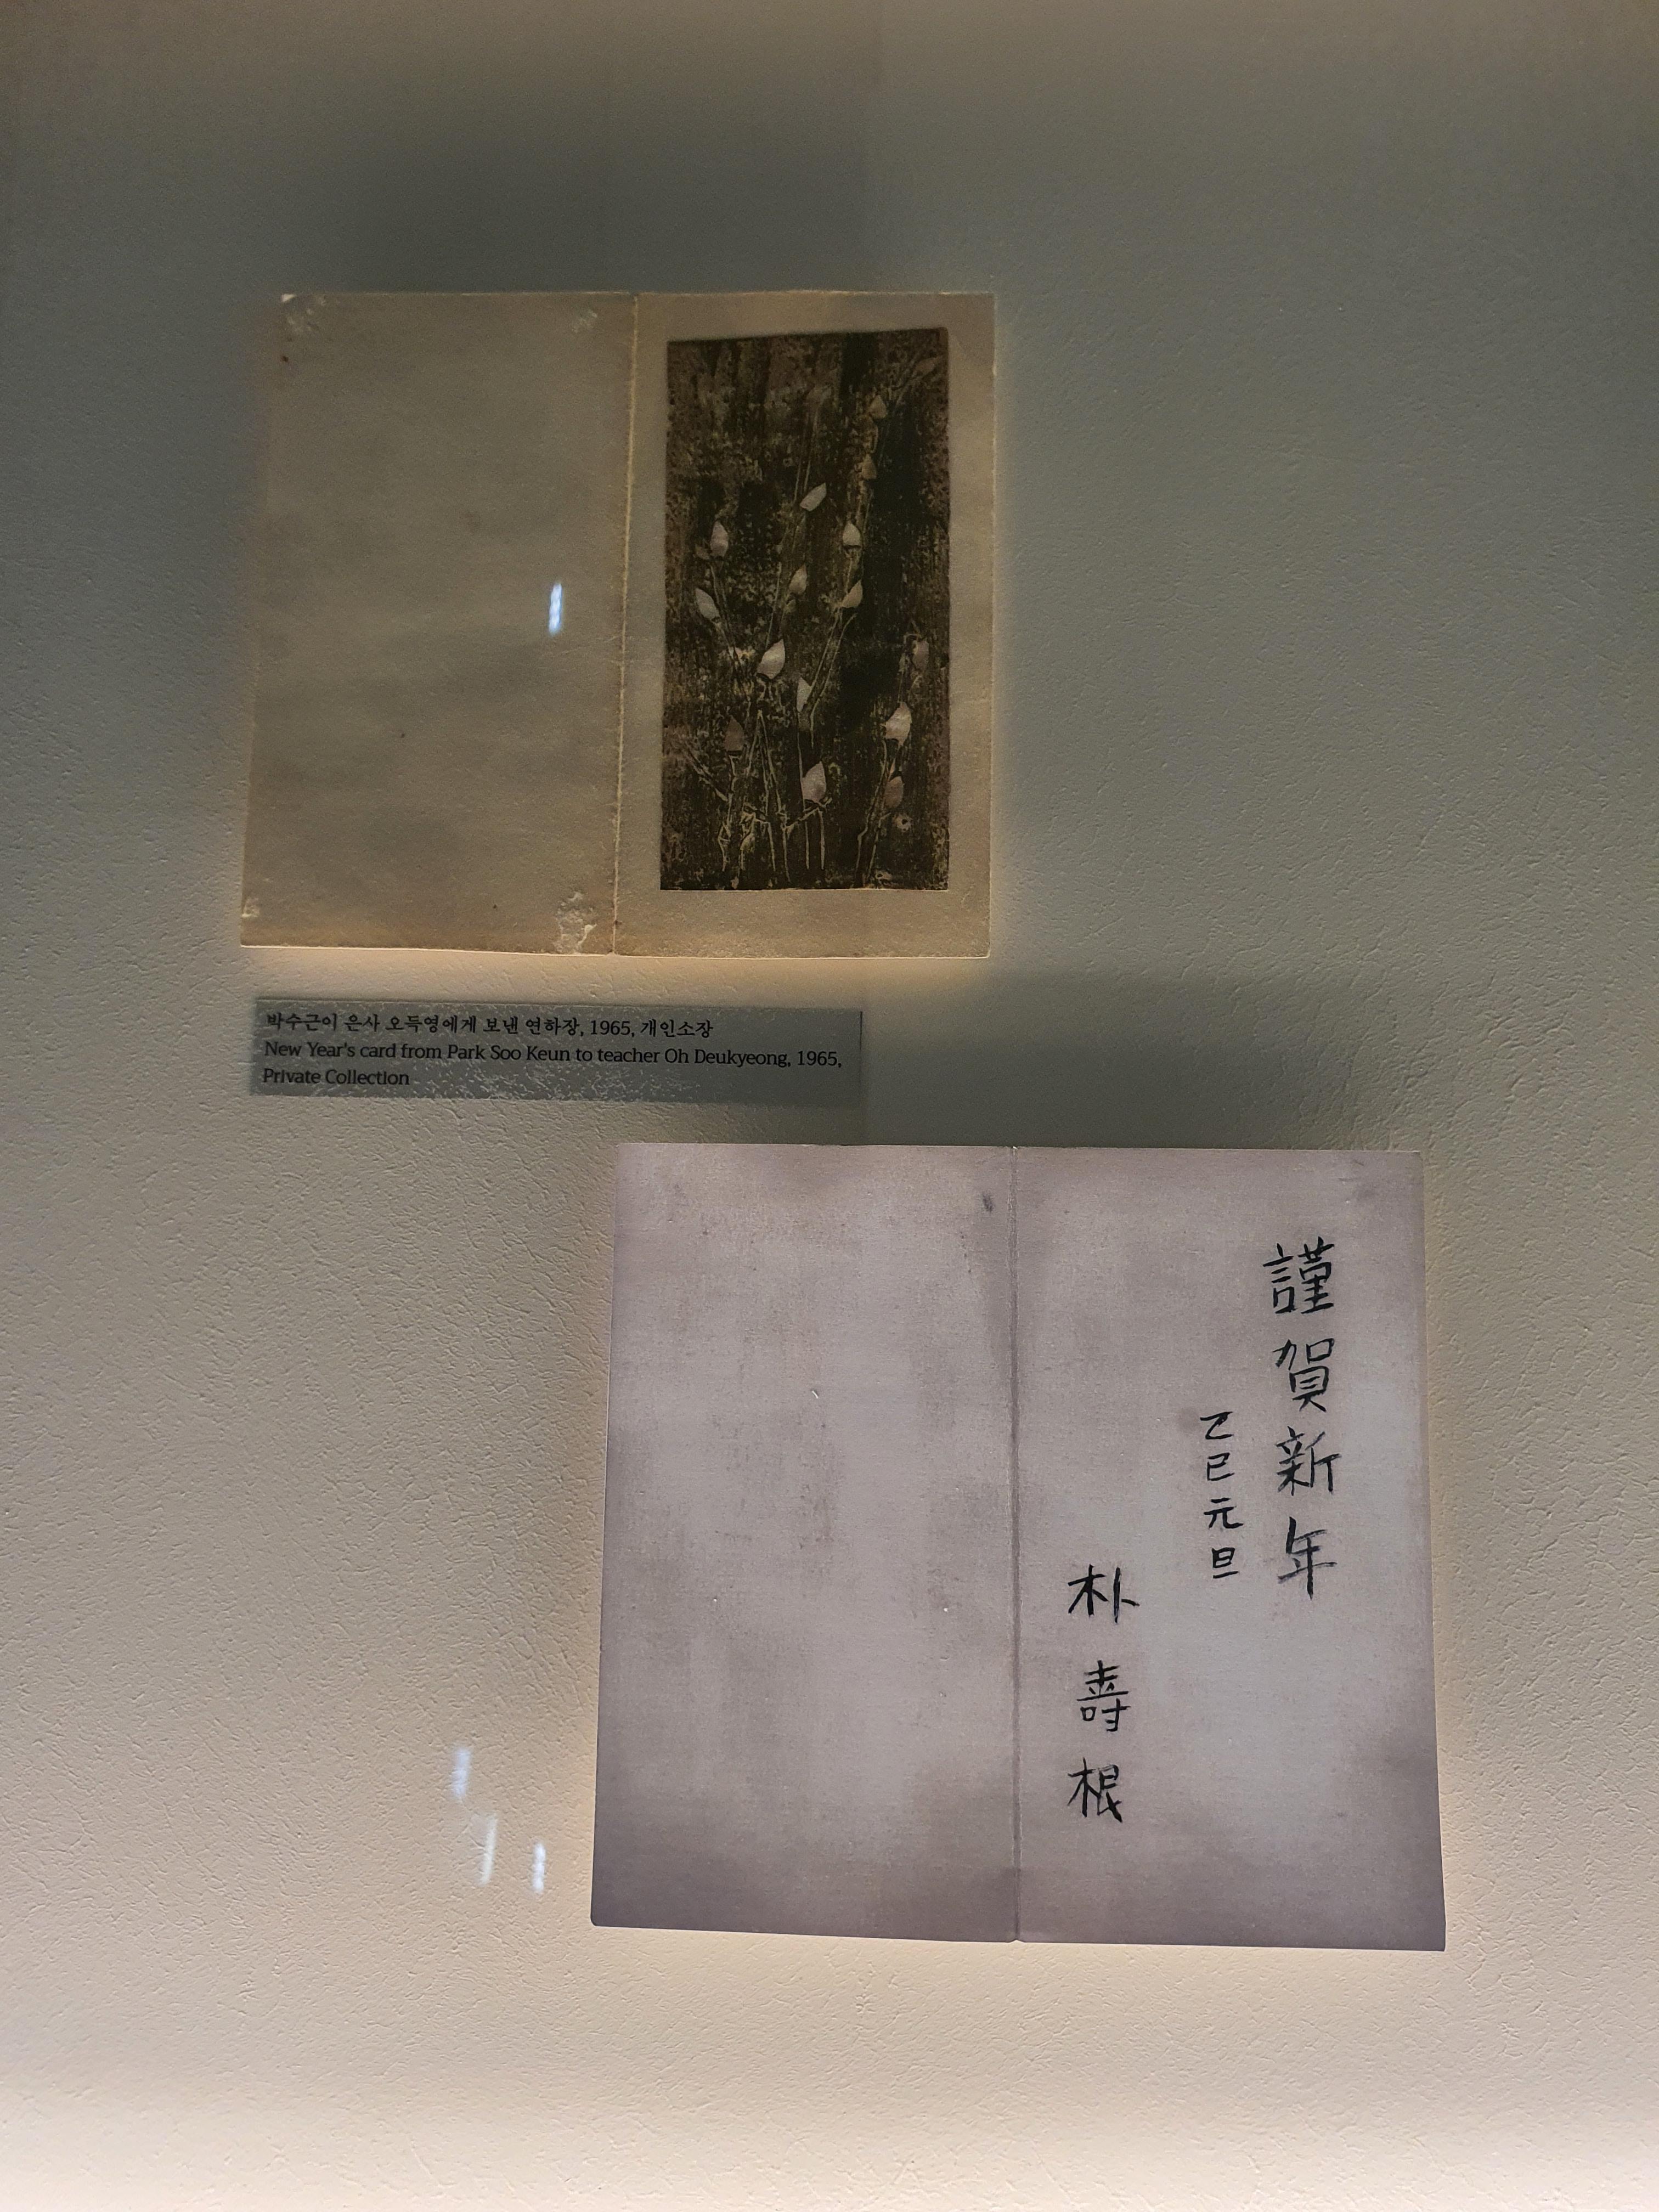 박수근이 은사 오득영에게 보낸 연하장, 1965, 개인소장
New Year's card from Park Soo Keun to teacher Oh Deukyeong, 1965,
Private Collection
謹賀新年
乙巳元旦
朴壽根